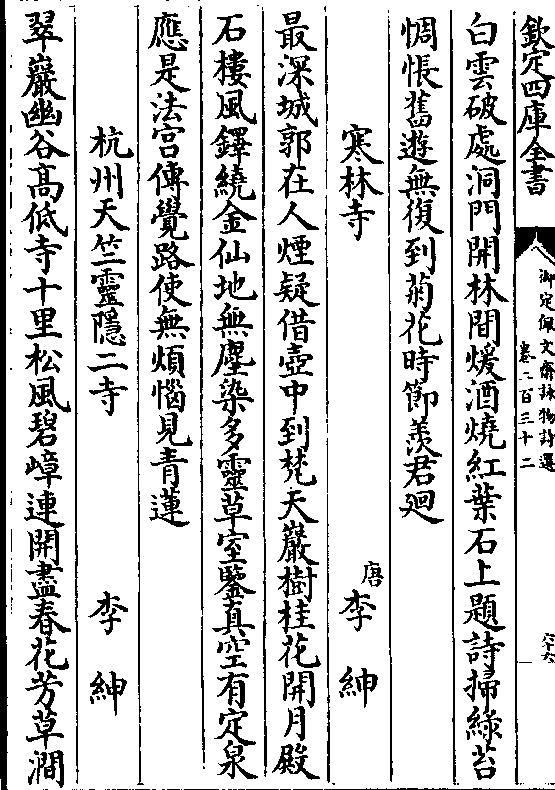 欽定四庫全書
御定佩文齋詠物詩選
卷二百三十二
白雲破處洞門開林間煖酒燒紅葉石上題詩掃綠苔
惆悵舊遊無復到菊花時節羨君廻
寒林寺
唐李紳
最深城郭在人煙疑借壺中到梵天巖樹桂花開月殿
石樓風鐸繞金仙地無塵染多靈草室鑒真空有定泉
應是法宮傳覺路使無煩惱見青蓮
杭州天竺靈隱二寺
李紳
翠巖幽谷高低寺十里松風碧嶂連開盡春花芳草澗